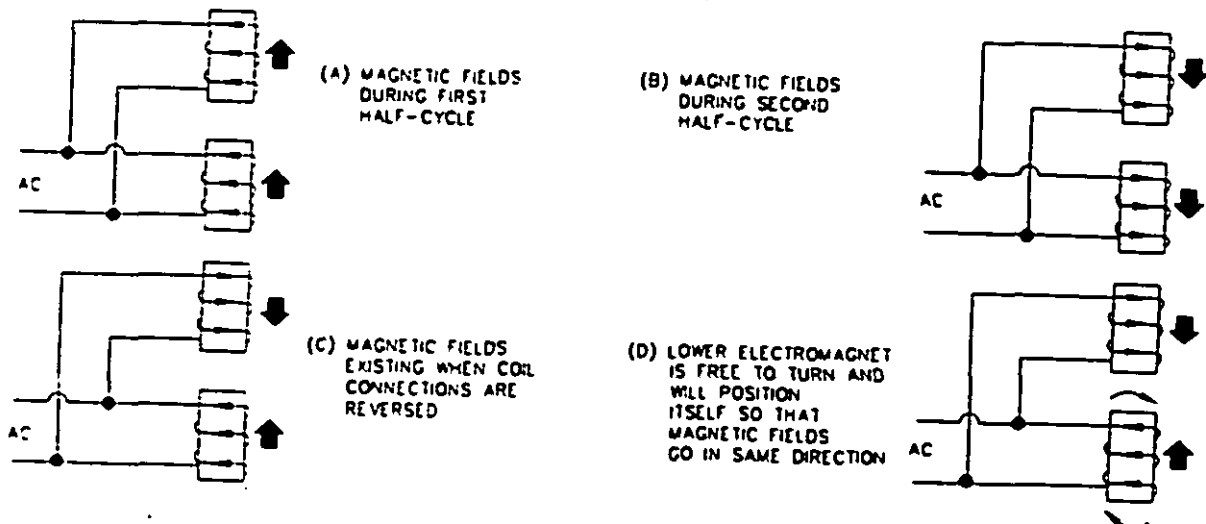 (A) MAGNETIC FIELDS
DURING FIRST
HALF-CYCLE
AC
(B) MAGNETIC FIELDS
DURING SECOND
HALF-CYCLE
AC
(C) MAGNETIC FIELDS
EXISTING WHEN COIL
CONNECTIONS ARE
REVERSED
AC
(D) LOWER ELECTROMAGNET
IS FREE TO TURN AND
WILL POSITION
ITSELF SO THAT
MAGNETIC FIELDS
GO IN SAME DIRECTION
AC